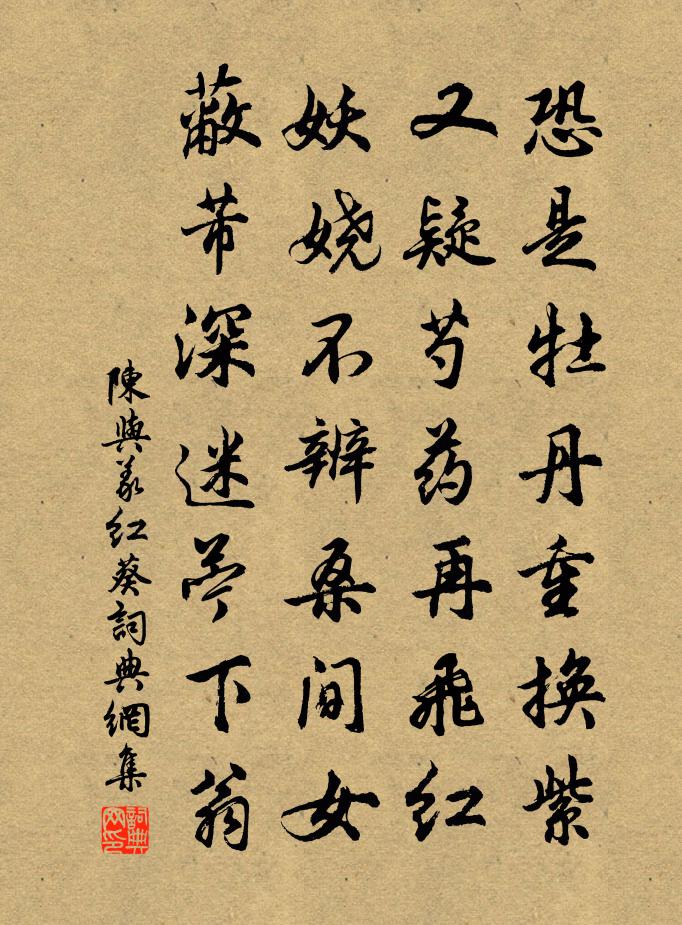 恐是牡丹重換紫
又疑芍药再飛紅
妖娆不辨桑间女
蔽芾深迷苧下翁
陳與義紅葵詞典網集
詞典网印